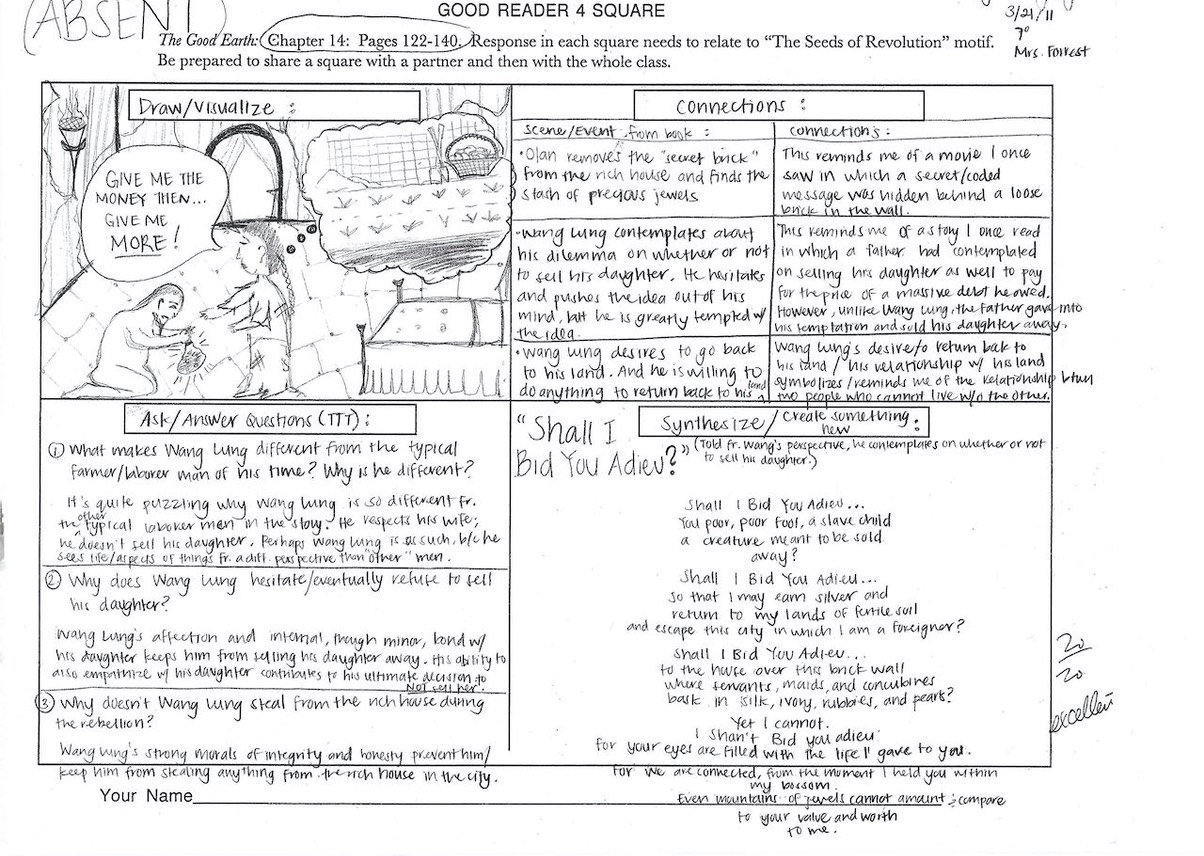 (ABSENT)
GOOD READER 4 SQUARE
3/21/11
7°
Mrs. Forrest
The Good Earth: Chapter 14: Pages 122-140. Response in each square needs to relate to “The Seeds of Revolution” motif.
Be prepared to share a square with a partner and then with the whole class.
Draw/Visualize :
GIVE ME THE
MONEY THEN...
GIVE ME
MORE!
Connections :
Scene/Event from book :
•Olan removes the "secret brick"
from the rich house and finds the
stash of precious jewels
•Wang Lung contemplates about
his dilemma on whether or not
to sell his daughter. He hesitates
and pushes the idea out of his
mind, but he is greatly tempted w/
the idea.
•Wang Lung desires to go back
to his land. And he is willing to
do anything to return back to his land
connections :
This reminds me of a movie I once
saw in which a secret/coded
message was hidden behind a loose
brick in the wall.
This reminds me of a story I once read
in which a father had contemplated
on selling his daughter as well to pay
for the price of a massive debt he owed.
However, unlike Wang Lung, the father gave into
his temptation and sold his daughter away.
Wang Lung's desire to return bak to
his land / his relationship w/ his land
symbolizes/reminds me of the relationship btwn
two people who cannot live w/o the other.
Ask/Answer Questions (TTT) :
① What makes Wang Lung different from the typical
farmer/laborer man of his time? Why is he different?
It's quite puzzling why Wang Lung is so different fr.
the other typical laborer men in the story. He respects his wife;
he doesn't sell his daughter. Perhaps Wang Lung is as such, b/c he
sees life/aspects of things fr. a diff. perspective than "other" men.
② Why does Wang Lung hesitate/eventually refuse to sell
his daughter?
Wang Lung's affection and internal, though minor, bond w/
his daughter keeps him from selling his daughter away. His ability to
also empathize w/ his daughter contributes to his ultimate decision to
not sell her.
③ Why doesn't Wang Lung steal from the rich house during
the rebellion?
Wang Lung's strong morals of integrity and honesty prevent him/
keep him from stealing anything from the rich house in the city.
Synthesize/Create something new :
"Shall I
Bid You Adieu?"
(Told fr. Wang's perspective, he contemplates on whether or not
to sell his daughter.)
Shall I Bid You Adieu...
You poor, poor fool, a slave child
a creature meant to be sold
away?
Shall I Bid You Adieu...
So that I may earn silver and
return to my lands of fertile soil
and escape this city in which I am a foreigner?
Shall I Bid You Adieu...
to the house over this brick wall
where servants, maids, and concubines
bask in silk, ivory, rubbies, and pearls?
Yet I cannot.
I shan't Bid you adieu
for your eyes are filled with the life I gave to you.
For we are connected, from the moment I held you within
my bossom.
Even mountains of jewels cannot amount & compare
to your value and worth
to me.
20
20
excellent
Your Name